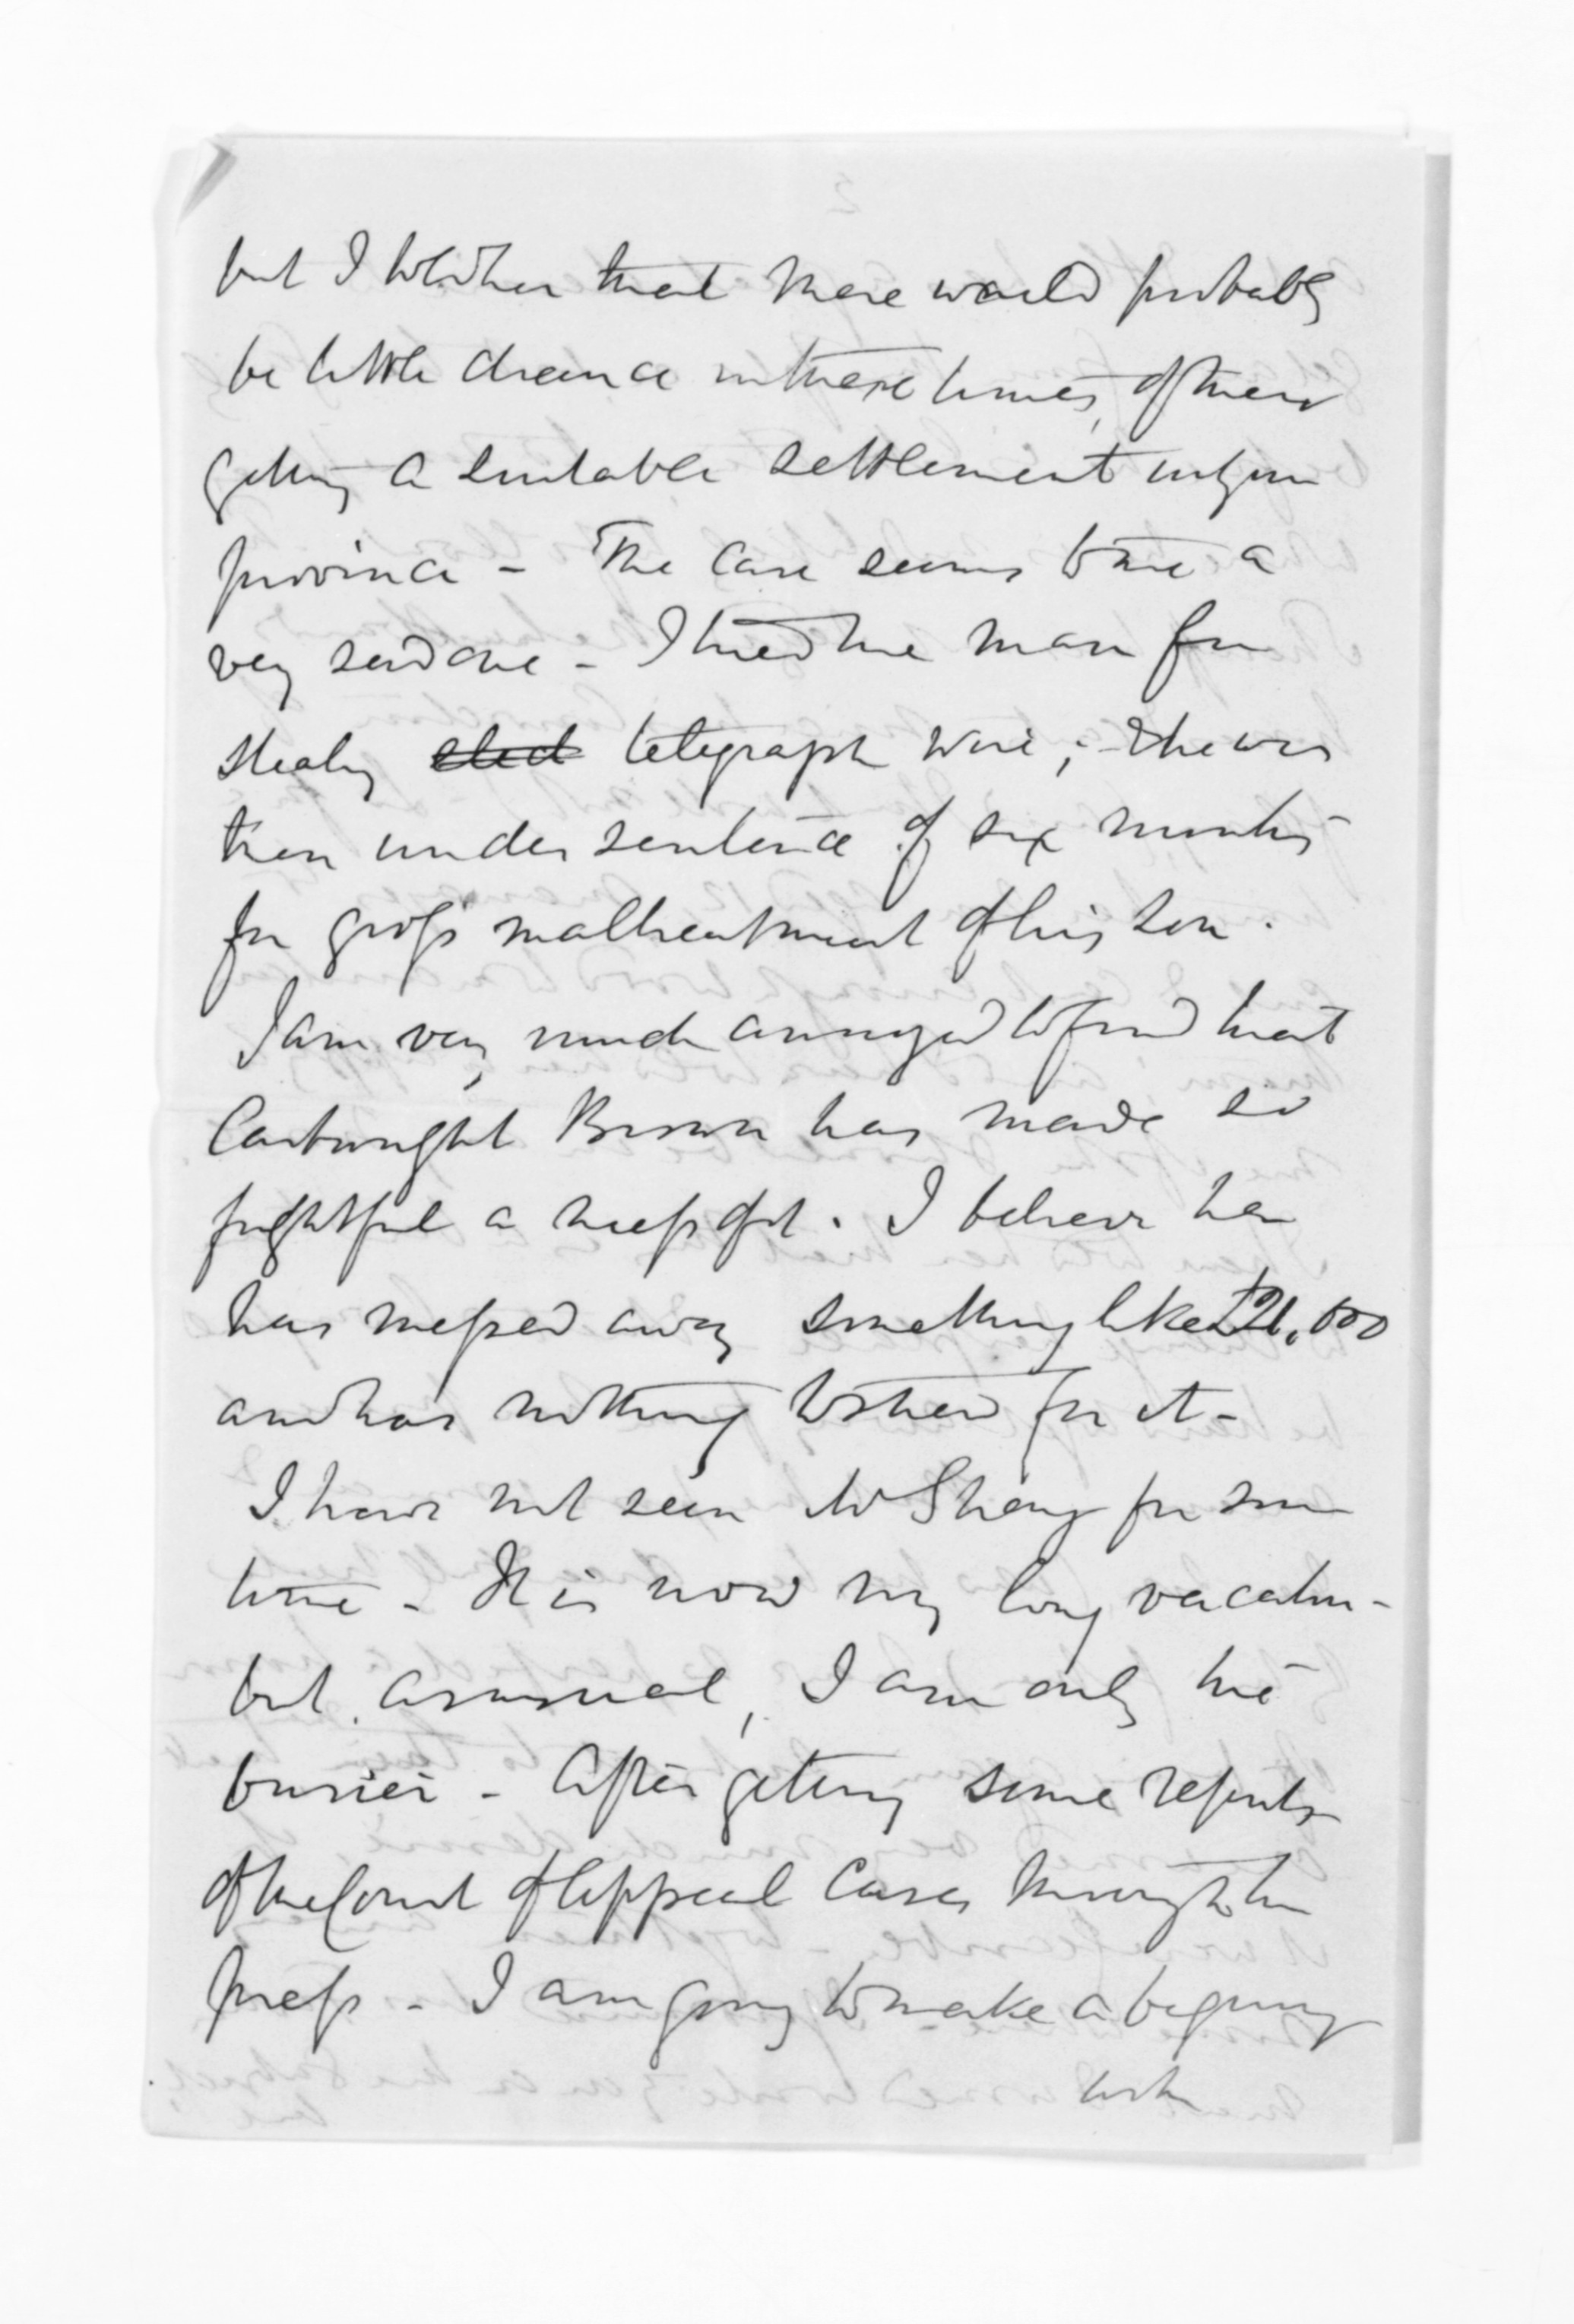 but I told her that there would probably
be little chance in these times, of their
getting a suitable settlement in your
province - The case seems to me a
very sad one - I tried the man for
stealing telegraph wire; - & he was
then under sentence of six months
for gross maltreatment of his son.
I am very much annoyed to find that
Cartwright Brown has made so
frightful a mess of it. I believe he
has messed away something like £21,000
and has nothing to shew for it -
I have not seen for some
time - It is now my long vacation -
but, as usual, I am only the
busier - After getting some reports
of the Court of Appeal Cases through the
press - I am going to make a beginning
with